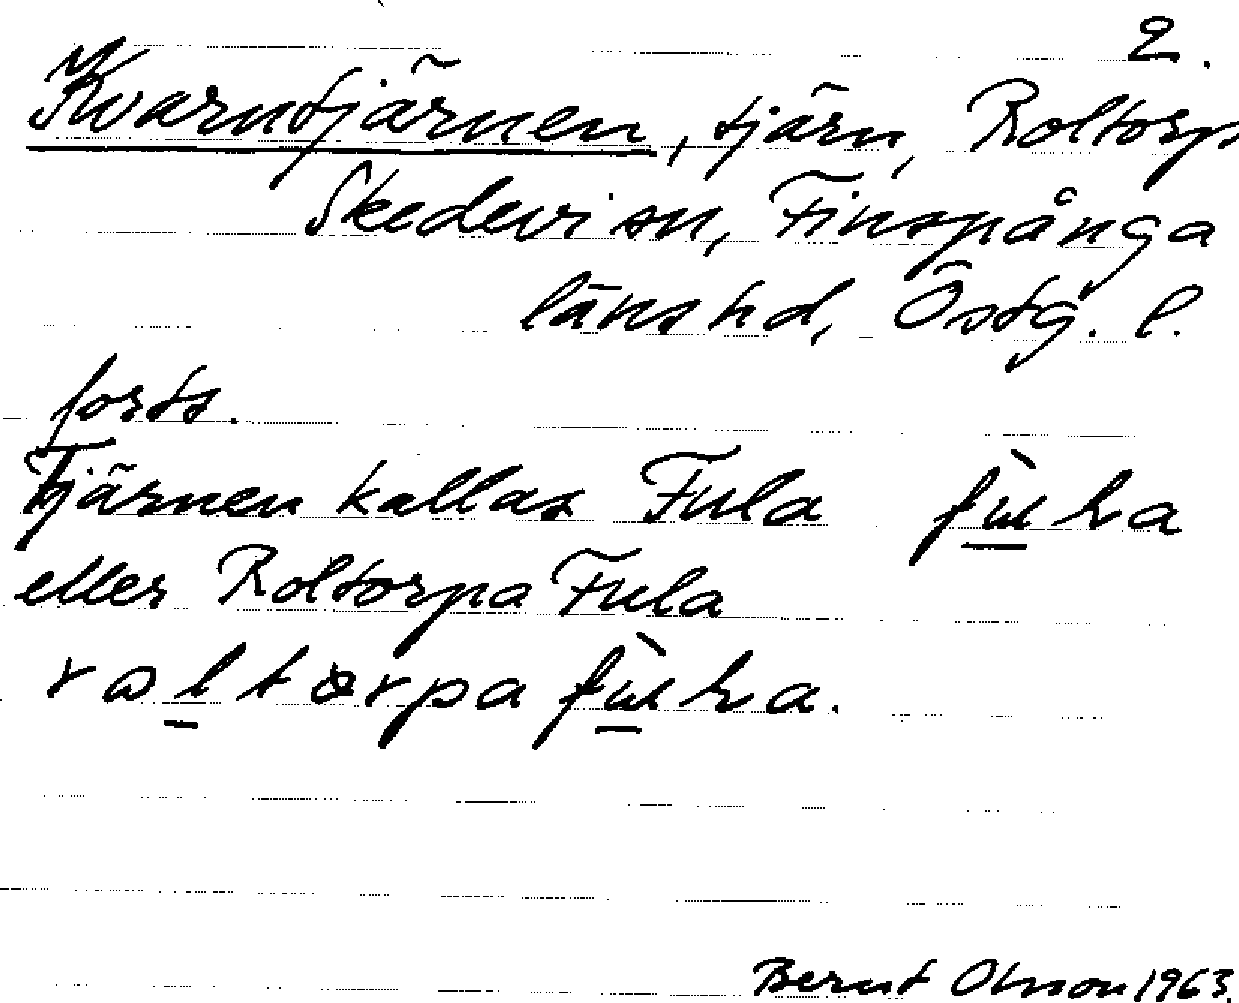 2.
Kvarntjärnen, tjärn, Roltorp
Skedevi sn, Finspånga
länshd, Östg. l.
forts.
Tjärnen kallas Fula
eller Roltorpa Fula
Bernt Olsson 1963.